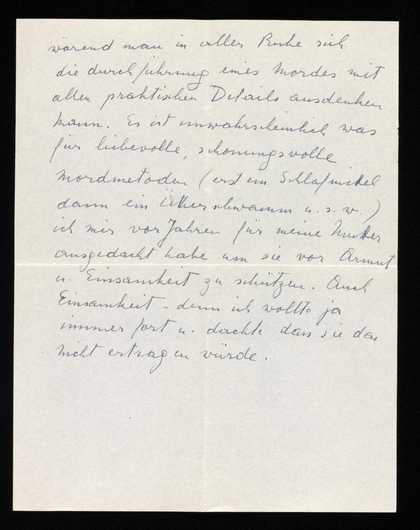 wärend man in aller Ruhe sich
die durchführung eines Mordes mit
allen praktischen Details ausdenken
kann. Es ist unwahrscheinlich was
für liebevolle, schonungsvolle
Mordmetoden (erst ein Schlafmittel
dann ein Ätherschwamm u.s.w.)
ich mir vor Jahren für meine Mutter
ausgedacht habe um sie vor Armut
u. Einsamkeit zu schützen. Auch
Einsamkeit - denn ich wollte ja
immer fort u. dachte dass sie das
nicht ertragen würde.